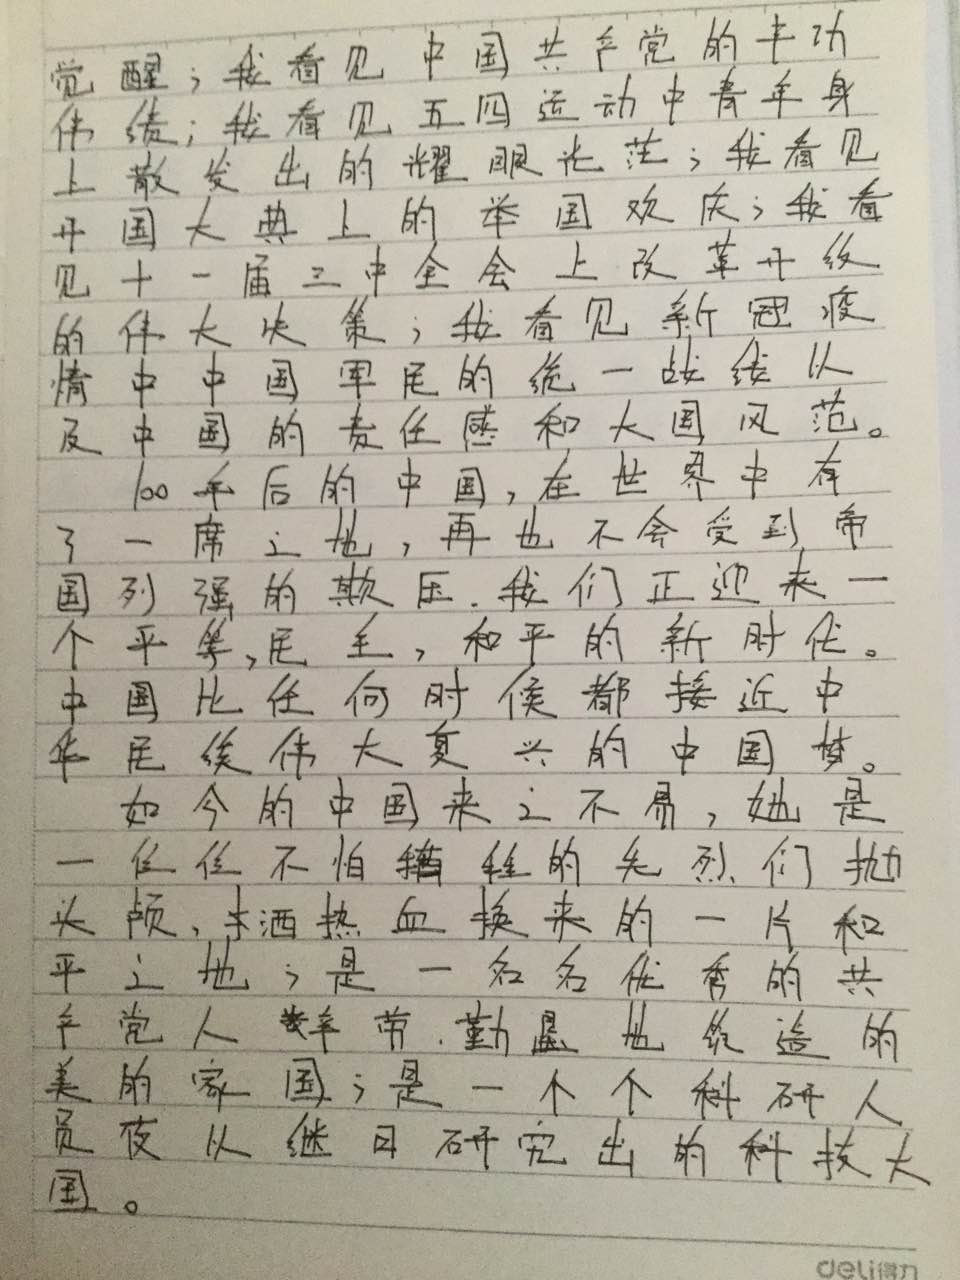 觉醒；我看见中国共产党的丰功
伟绩；我看见五四运动中青年身
上散发出的耀眼光茫；我看见
开国大典上的举国欢庆；我看
见十一届三中全会上改革开放
的伟大决策；我看见新冠疫
情中中国军民的统一战线以
及中国的责任感和大国风范。
100年后的中国，在世界中有
了一席之地，再也不会受到帝
国列强的欺压．我们正迎来一
个平等，民主，和平的新时代。
中国比任何时候都接近中
华民族伟大复兴的中国梦。
如今的中国来之不易，她是
一位位不怕牺牲的先烈们抛
头颅、洒热血换来的一片和
平之地；是一名名优秀的共
产党人辛劳、勤恳地缔造的
美的家国；是一个个科研人
员夜以继日研究出的科技大
国。
deli得力